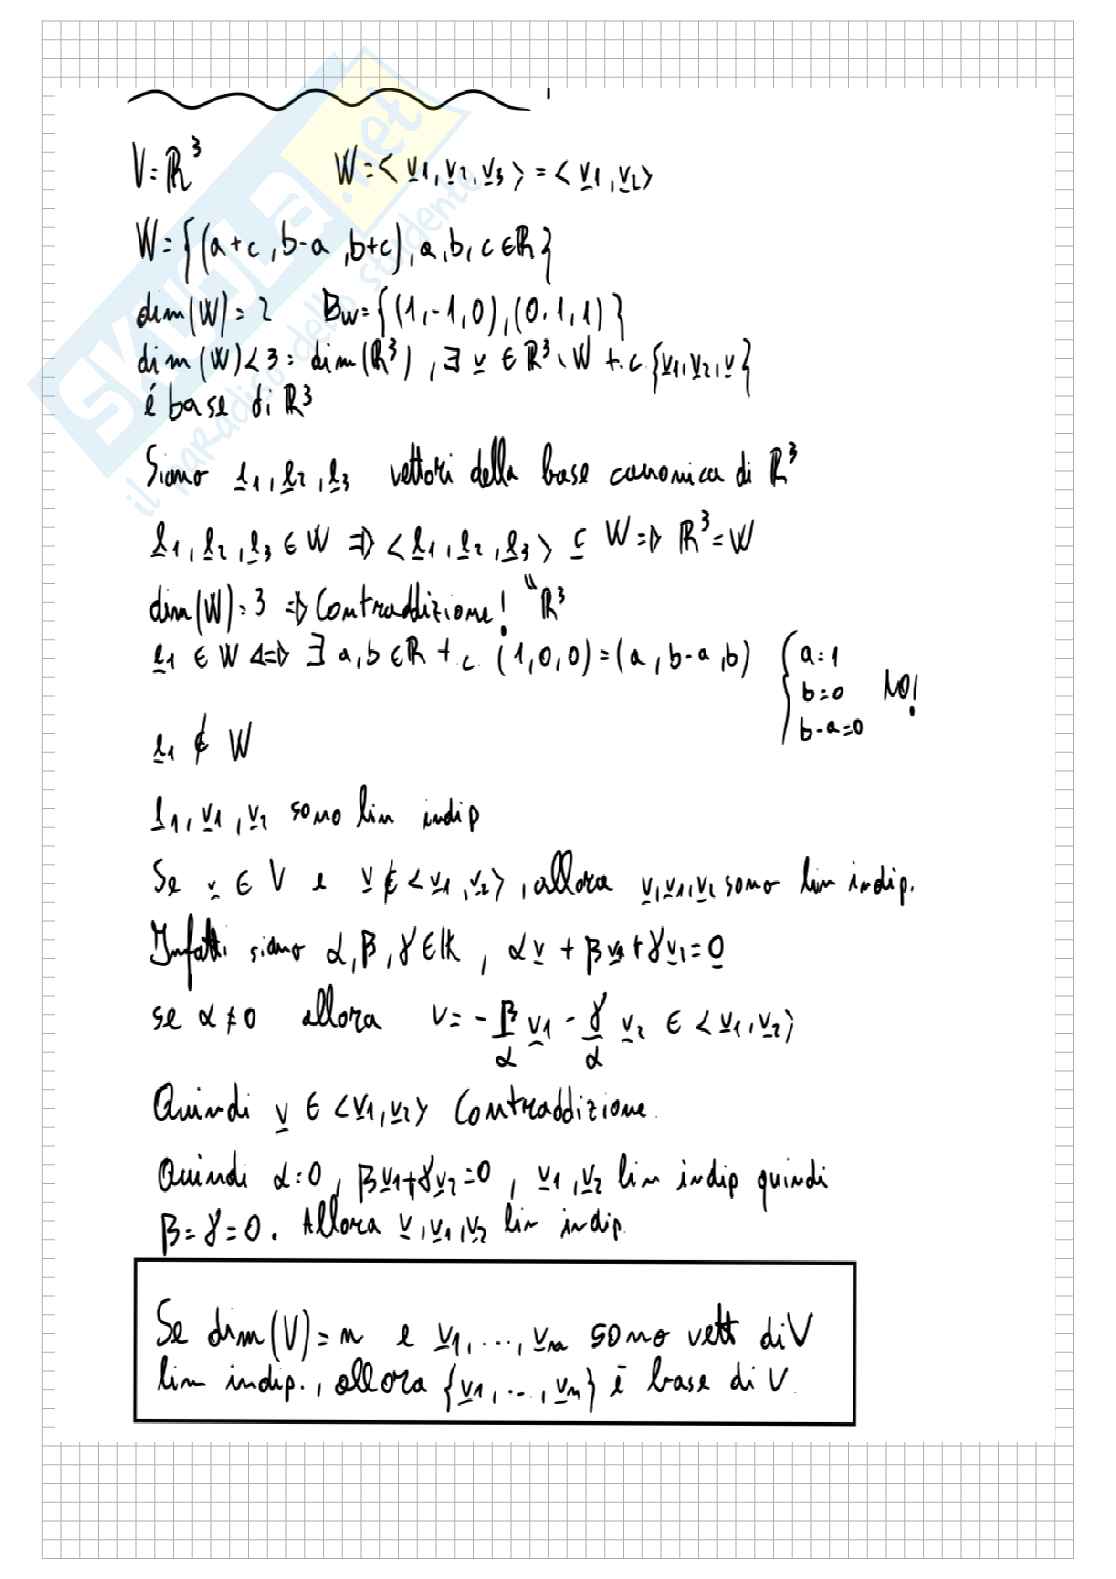 V=ℝ³ W=< v1, v2, v3 > = < v1, v2 >
W={(a+c, b-a, b+c), a, b, c ∈ ℝ}
dim(W)=2 Bw={(1,-1,0),(0,1,1)}
dim(W)<3=dim(ℝ³), ∃ v ∈ ℝ³\W t.c. {v1,v2,v}
é base di ℝ³
Siano e1, e2, e3 vettori della base canonica di ℝ³
e1, e2, e3 ∈ W ⇒ < e1, e2, e3 > ⊆ W ⇒ ℝ³=W
dim(W)=3 ⇒ Contraddizione! " ℝ³
e1 ∈ W ⇔ ∃ a, b ∈ ℝ t.c. (1,0,0)=(a, b-a, b) { a=1
b=0 NO!
b-a=0
e1 ∉ W
e1, v1, v2 sono lin indip
Se v ∈ V e v ∉ < v1, v2 >, allora v, v1, v2 sono lin indip.
Infatti siano α, β, γ ∈ K, αv + βv2 + γv1 = 0
se α ≠ 0 allora v = - β/α v1 - γ/α v2 ∈ < v1, v2 >
Quindi v ∈ < v1, v2 > Contraddizione.
Quindi α=0, βv1+γv2=0, v1, v2 lin indip quindi
β=γ=0. Allora v, v1, v2 lin indip.
Se dim(V)=n e v1, ..., vn sono vett di V
lin indip., allora {v1, ..., vn} è base di V.
SKUOLA.net
il paradiso dello studente